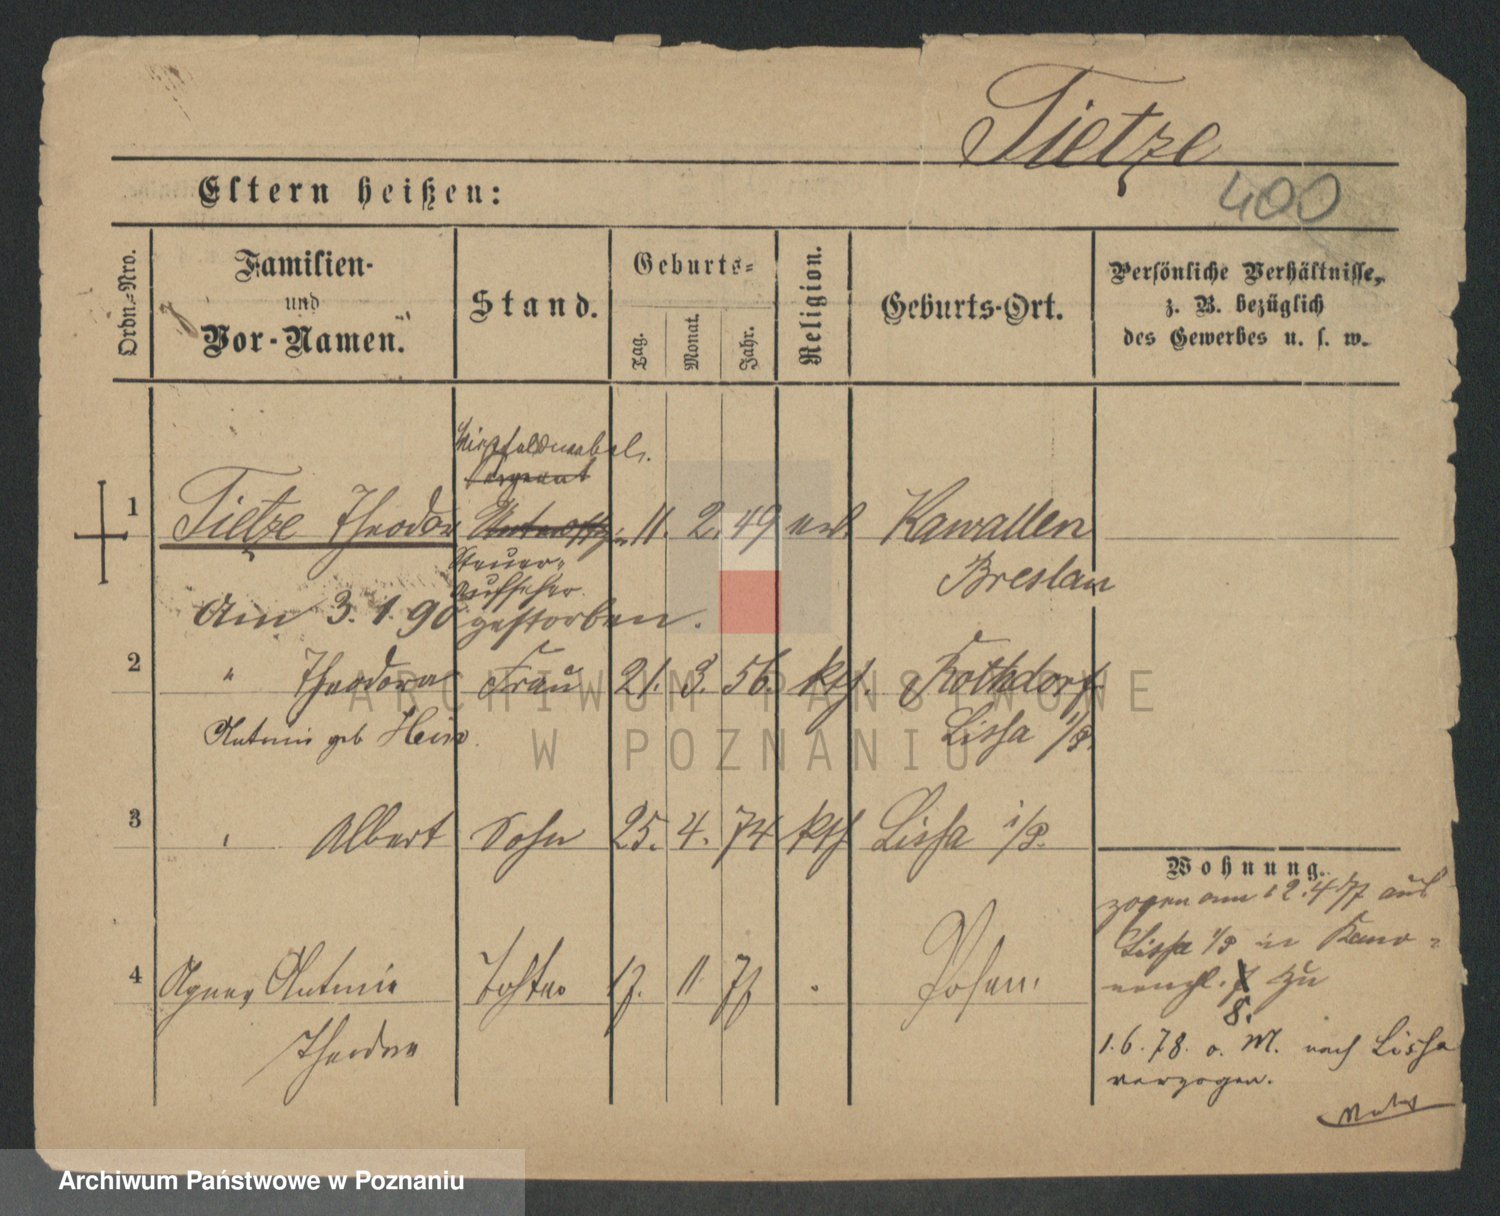 Tietze
400
Eltern heißen:
Ordn.-Nro.
Familien-
und
Vor-Namen.
Stand.
Geburts-
Tag.
Monat.
Jahr.
Religion.
Geburts-Ort.
Persönliche Verhältnisse,
z. B. bezüglich
des Gewerbes u. s. w.
Sergeant
1 Tietze Theodor 11. 2. 49 Kawallen
Steuer-
Aufseher
Breslau
Am 3. 1. 90 gestorben.
2 " Theodora Frau 21. 3. 56. kth. Rothdorf
Antonie geb Hein. Lissa i/P.
3 " Albert Sohn 25. 4. 74 kth Lissa i/P.
Wohnung.
zogen am 12.4.77 aus
Lissa i/P in
4 Agnes Antonie Tochter 17. 11. 77 Posen.
zu
8.
Theodora
1.6.78. o. M. nach Lissa
verzogen.
ARCHIWUM PAŃSTWOWE
W POZNANIU
Archiwum Państwowe w Poznaniu